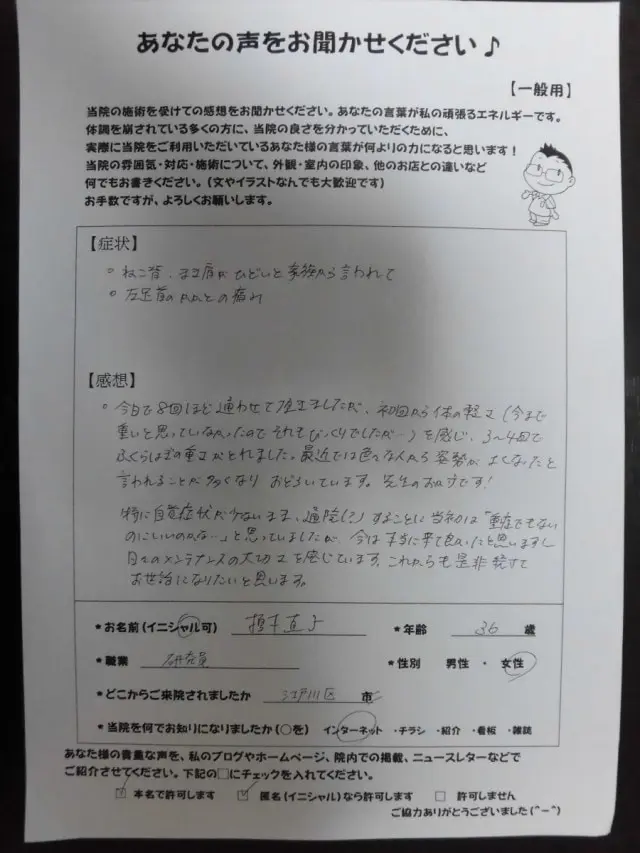 あなたの声をお聞かせください♪
【一般用】
当院の施術を受けての感想をお聞かせください。あなたの言葉が私の頑張るエネルギーです。
体調を崩されている多くの方に、当院の良さを分かっていただくために、
実際に当院をご利用いただいているあなた様の言葉が何よりの力になると思います!
当院の雰囲気・対応・施術について、外観・室内の印象、他のお店との違いなど
何でもお書きください。(文やイラストなんでも大歓迎です)
お手数ですが、よろしくお願いします。
【症状】
。ねこ背、まき肩がひどいと家族から言われて
。左足首のねんざの痛み
【感想】
。今日で8回ほど通わせて頂きましたが、初回から体の軽さ(今まで
重いと思っていなかったのでそれもびっくりでしたが…)を感じ、3〜4回で
ふくらはぎの重さがとれました。最近では色々な人から姿勢がよくなったと
言われることが多くなり おどろいています。先生のおかげです!
特に自覚症状が少ないまま、通院(?)することに当初は「重症でもない
のにいいのかな…」と思っていましたが、今は本当に来て良かったと思いますし
日々のメンテナンスの大切さを感じています。これからも是非続けて
お世話になりたいと思います。
*お名前(イニシャル可) 直子 *年齢 36 歳
*職業 研究員 *性別 男性 ・ 女性
*どこからご来院されましたか 江戸川区 市
*当院を何でお知りになりましたか(○を) インターネット ・チラシ ・紹介 ・看板 ・雑誌
あなた様の貴重な声を、私のブログやホームページ、院内での掲載、ニュースレターなどで
ご紹介させてください。下記の□にチェックを入れてください。
☑ 本名で許可します ☑ 匿名(イニシャル)なら許可します □ 許可しません
ご協力ありがとうございました(^-^)